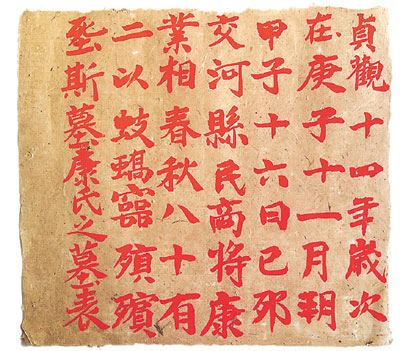 貞觀十四年歲次
在庚子十一月朝
甲子十六日己邜
交河縣民商將康
業相春秋八十有
二以蚑蝺靈殞殯
斯墓康氏之墓表